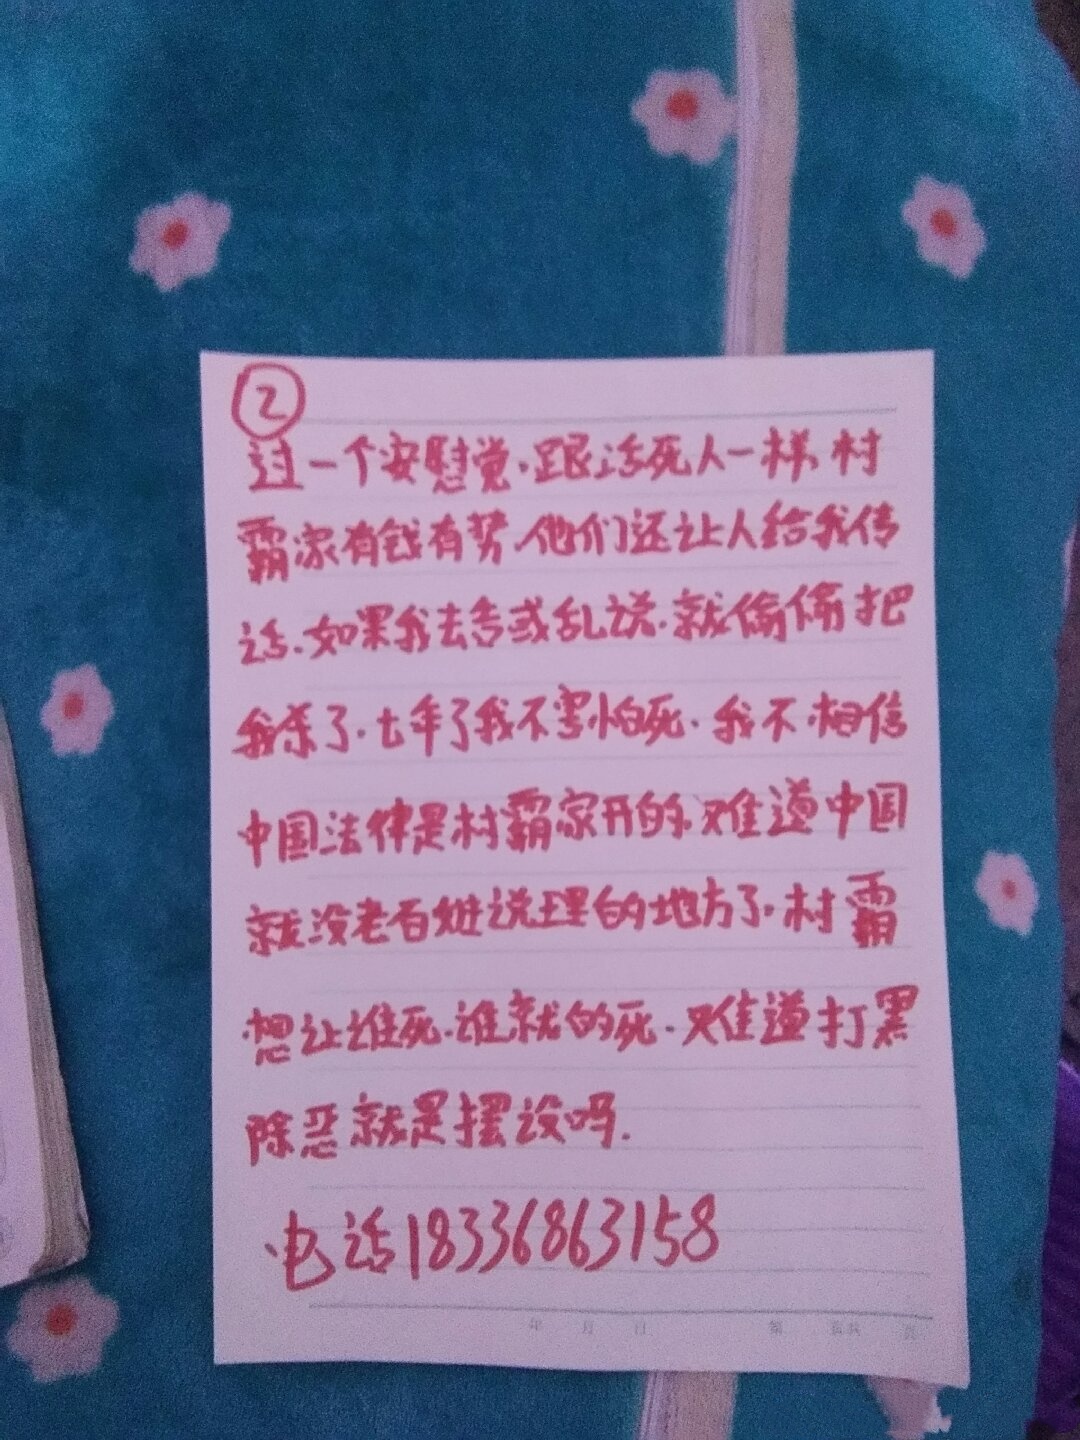 ②
过一个安慰觉.跟活死人一样,村
霸家有钱有势.他们还让人给我传
话.如果我去告或乱说.就偷偷把
我杀了.七年了我不害怕死.我不相信
中国法律是村霸家开的.难道中国
就没老百姓说理的地方了.村霸
想让谁死.谁就的死.难道打黑
除恶就是摆设吗.
电话18336863158
年 月 日 第 页共 页